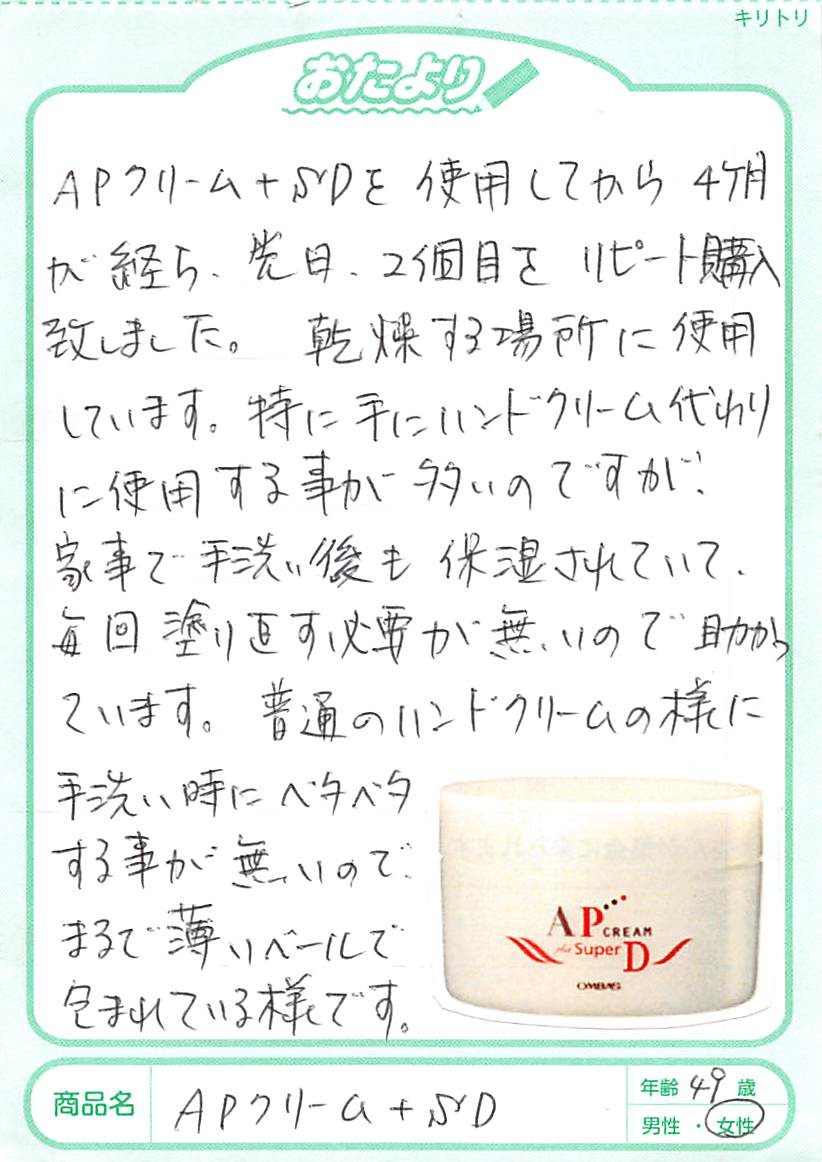 キリトリ
おたより
APクリーム+SDを 使用してから 4ケ月
が経ち、先日、2個目を リピート購入
致しました。 乾燥する場所に使用
しています。特に手にハンドクリーム代わり
に使用する事が多いのですが、
家事で手洗い後も 保湿されていて、
毎回塗り直す必要が無いので助かっ
ています。 普通のハンドクリームの様に
手洗い時にベタベタ
する事が無いので、
まるで薄いベールで
包まれている様です。
AP CREAM
plus Super D
OMBAS
商品名 APクリーム+SD
年齢 49 歳
男性 ・ 女性